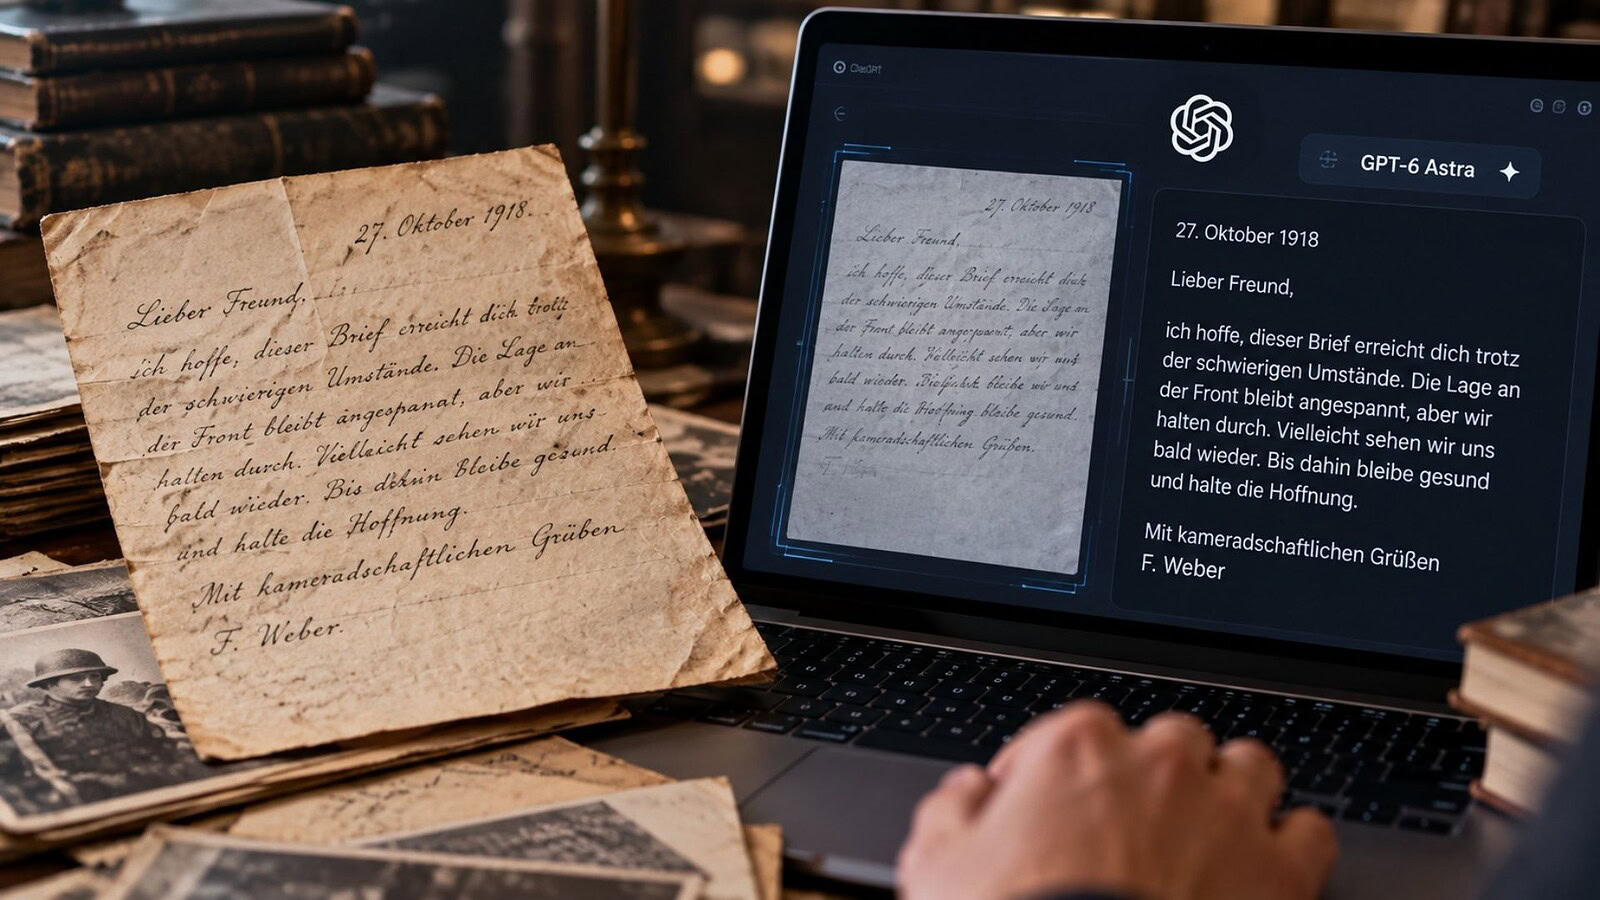 27. Oktober 1918.
Lieber Freund,
ich hoffe, dieser Brief erreicht dich
der schwierigen Umstände. Die Lage an
der Front bleibt angespanat, aber wir
halten durch. Vielleicht sehen wir uns
bald wieder. Bis dahin Bleibe gesund.
und halte die Hoffnung.
Mit kameradschaftlichen Grüben
F. Weber.
ChatGPT
27. Oktober 1918
Lieber Freund,
ich hoffe, dieser Brief erreicht dich
der schwierigen Umstände. Die Lage an
der Front bleibt angespannt, aber wir
halten durch. Vielleicht sehen wir uns
bald wieder. bleibe wir und
und halte die bleibe gesund.
Mit kameradschaftlichen Grüßen.
GPT-6 Astra
27. Oktober 1918
Lieber Freund,
ich hoffe, dieser Brief erreicht dich trotz
der schwierigen Umstände. Die Lage an
der Front bleibt angespannt, aber wir
halten durch. Vielleicht sehen wir uns
bald wieder. Bis dahin bleibe gesund
und halte die Hoffnung.
Mit kameradschaftlichen Grüßen
F. Weber